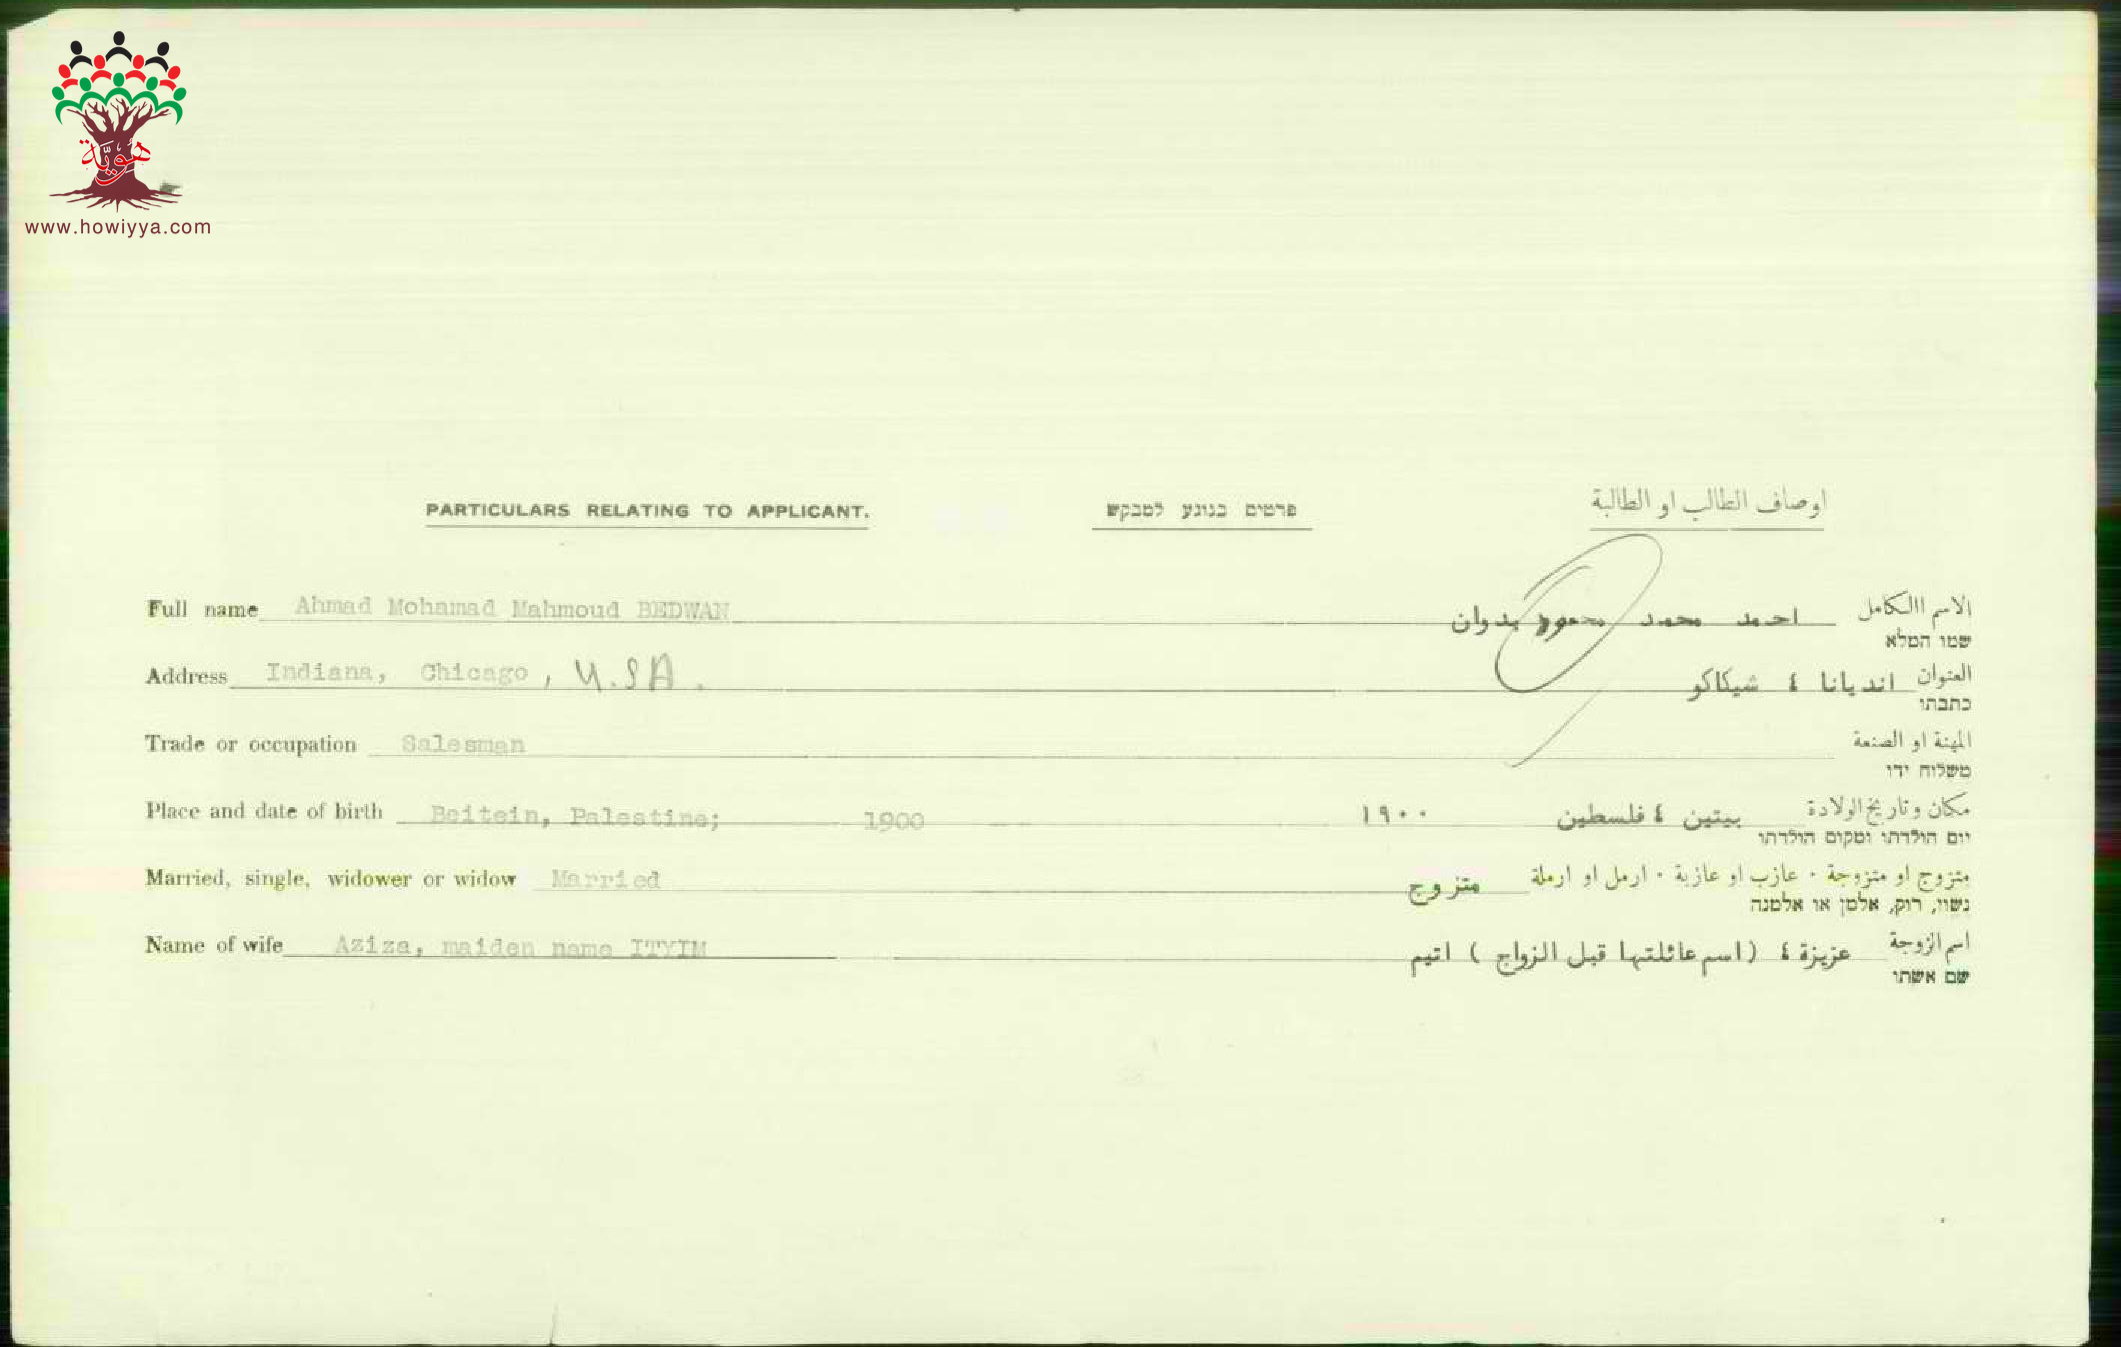 هُويَّة
www.howiyya.com
PARTICULARS RELATING TO APPLICANT. פרטים בנוגע למבקש اوصاف الطالب او الطالبة
Full name Ahmad Mohamad Mahmoud BEDWAN احمد محمد محمود بدوان الاسم الكامل
שמו המלא
Address Indiana, Chicago, U.S.A. انديانا ٤ شيكاكو العنوان
כתבתו
Trade or occupation Salesman المهنة او الصنعة
משלוח ידו
Place and date of birth Beitein, Palestine; 1900 ١٩٠٠ بيتين ٤ فلسطين مكان وتاريخ الولادة
יום הולדתו ומקום הולדתו
Married, single, widower or widow Married متزوج متزوج او متزوجة · عازب او عازبة · ارمل او ارملة
נשוי, רוק, אלמן או אלמנה
Name of wife Aziza, maiden name ITYIM عزيزة ٤ (اسم عائلتها قبل الزواج) اتيم اسم الزوجة
שם אשתו